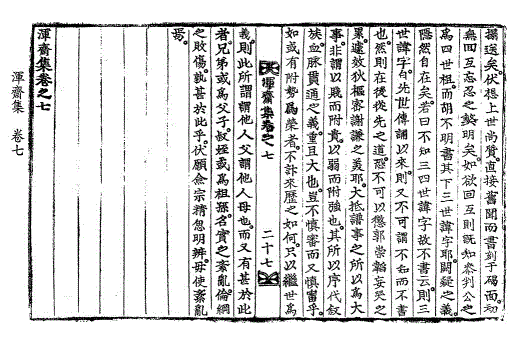 撰送矣伏想上世尚質直接舊聞而書刻于碣面初
無回互忘忽之懿明矣如欲回互則旣知參判公之
爲四世祖而胡不明書其下三世諱字耶闕疑之義
隱然自在矣若曰不知三四世諱字故不書云則三
世諱字自先世傳誦以來則又不可謂不知而不書
也然則在後從先之道恐不可以懲郭崇韜妄哭之
累遽效狄樞密謝謙之美耶大抵譜事之所以爲大
事非謂以賤而附貴以弱而附強也其所以序代叙
族血脉貫通之義重且大也豈不愼審而又愼審乎
如或有附勢爲榮者不計來歷之如何只以繼世爲
渾齋集卷之七 二十七
義則此所謂謂他人父謂他人母也而又有甚於此
者兄弟或爲父子叔姪或爲祖孫名實之紊亂倫綱
之敗傷孰甚於此乎伏願僉宗精思明辨毋使紊亂
焉
渾齋集卷之七
渾齋集 卷七